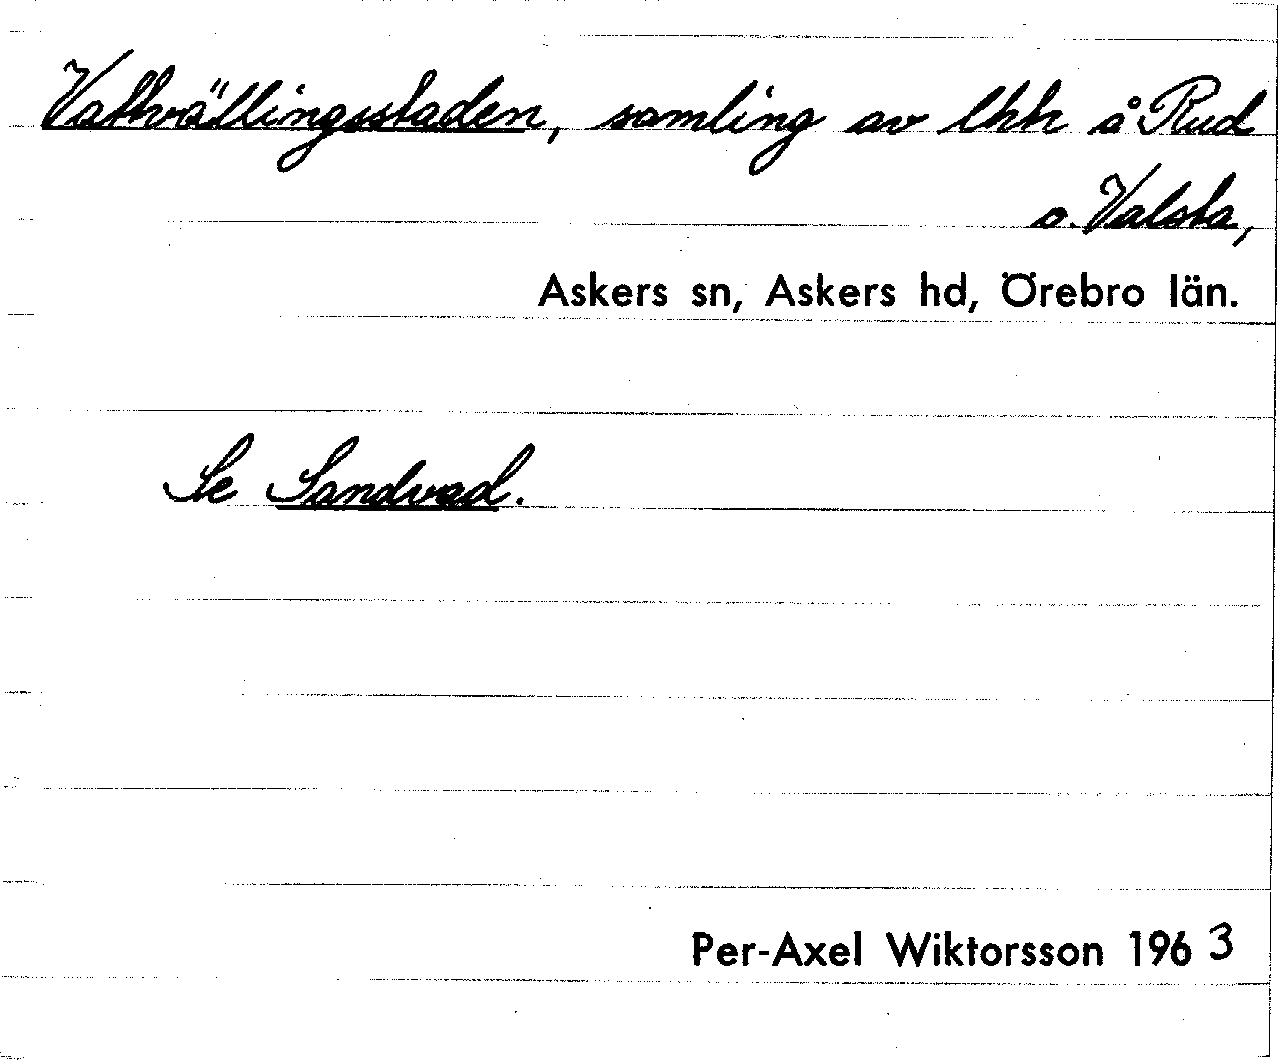 Vattvällingsstaden, samling av lhh å Rud
o. Valsta,
Askers sn, Askers hd, Örebro län.
Se Sandvad.
Per-Axel Wiktorsson 1963